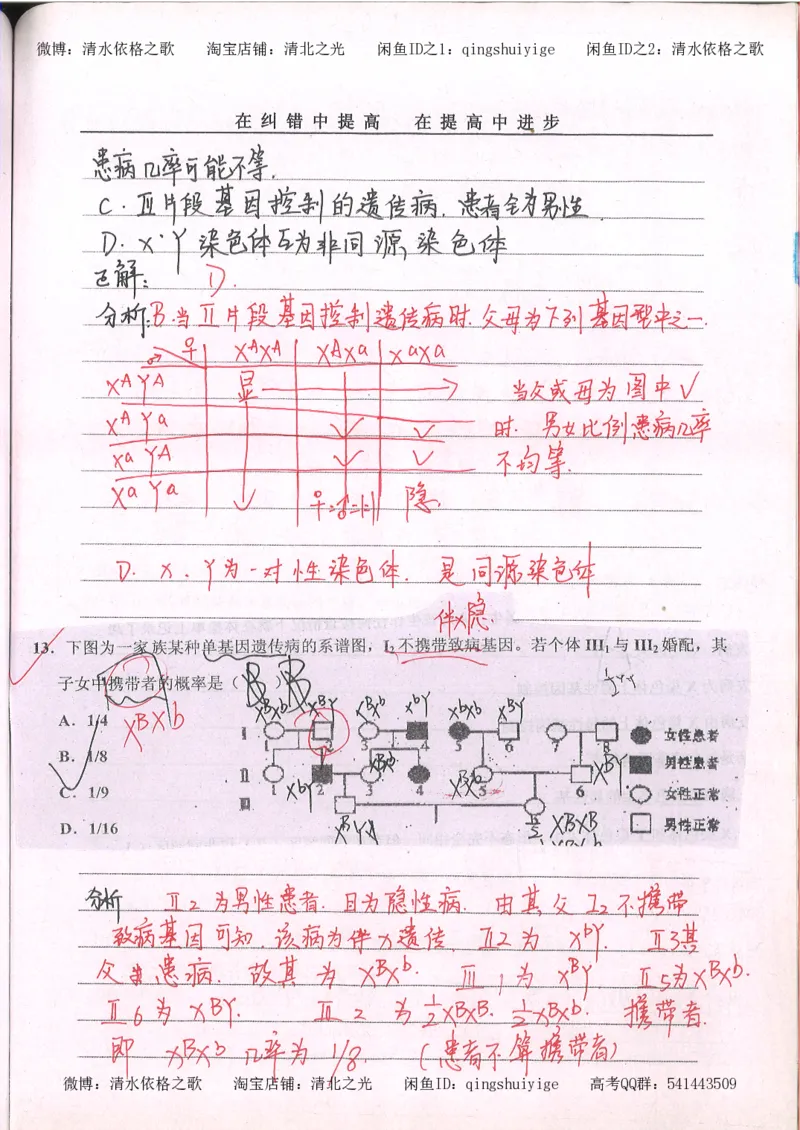 微博：清水依格之歌 淘宝店铺：清北之光 闲鱼ID之1：qingshuiyige 闲鱼ID之2：清水依格之歌
在纠错中提高 在提高中进步
患病几率可能不等.
C. Ⅲ片段基因控制的遗传病. 患者全为男性
D. X.Y 染色体互为非同源染色体
正解： D.
分析:B.当Ⅱ片段基因控制遗传病时.父母为下列基因型中之一.
♂ ♀ XAXA XAXa XaXa
XAYA 显
XAYa ✓ ✓
XaYA ✓ ✓
XaYa ♀:♂=1:1 隐.
当父或母为图中✓
时. 男女比例患病几率
不均等.
D. X、Y为一对性染色体. 是同源染色体
伴X隐.
13. 下图为一家族某种单基因遗传病的系谱图，I2不携带致病基因。若个体III1与III2婚配，其
子女中携带者的概率是（ B ） B
A. 1/4
B. 1/8
C. 1/9
D. 1/16
XBXb
XBXb XBY XBXb XbY XbXb XBY
I 1 2 3 4 5 6 7 8
II 1 2 3 4 5 6
XbY XBXb XBXb XBY
III
XBY XBXB
女性患者
男性患者
女性正常
男性正常
分析 Ⅱ2为男性患者. 且为隐性病. 由其父I2不携带
致病基因可知. 该病为伴X遗传. Ⅱ2为 XbY. Ⅱ3其
父患病. 故其为 XBXb. Ⅲ1为 XBY. Ⅱ5为XBXb.
Ⅱ6为 XBY. Ⅲ2 为 1/2XBXB. 1/2XBXb. 携带者.
即 XBXb 几率为 1/8. (患者不算携带者)
微博：清水依格之歌 淘宝店铺：清北之光 闲鱼ID：qingshuiyige 高考QQ群：541443509